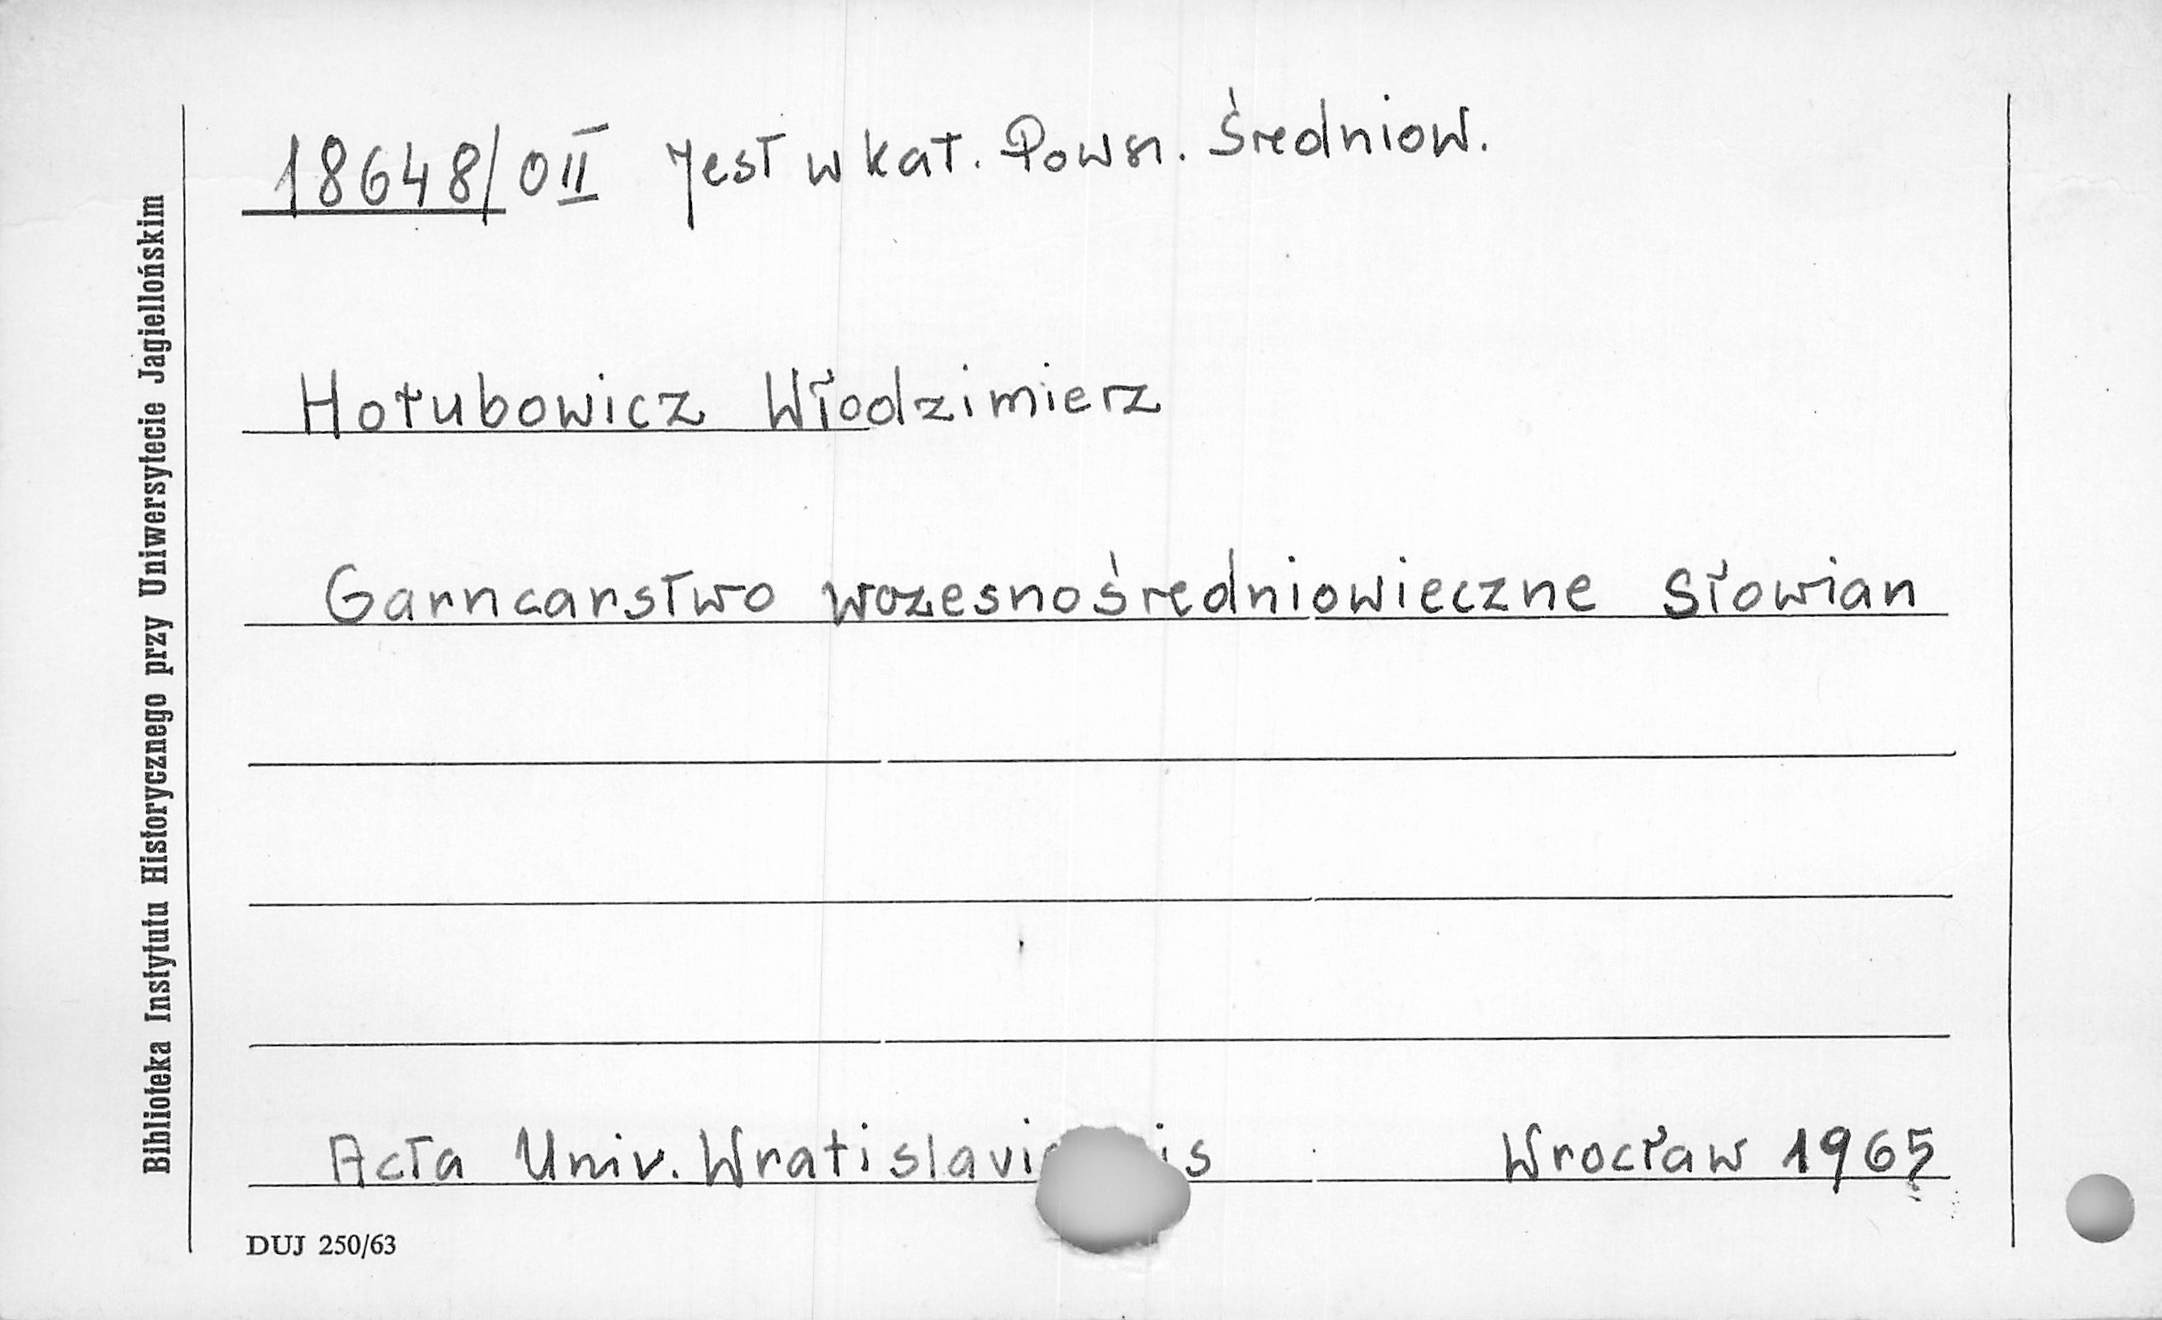 18648/OII Jest w kat. Powsz. Średniow.
Hołubowicz Włodzimierz
Garncarstwo wczesnośredniowieczne Słowian
Acta Univ. Wrocław 1965
DUJ 250/63
Biblioteka Instytutu Historycznego przy Uniwersytecie Jagiellońskim